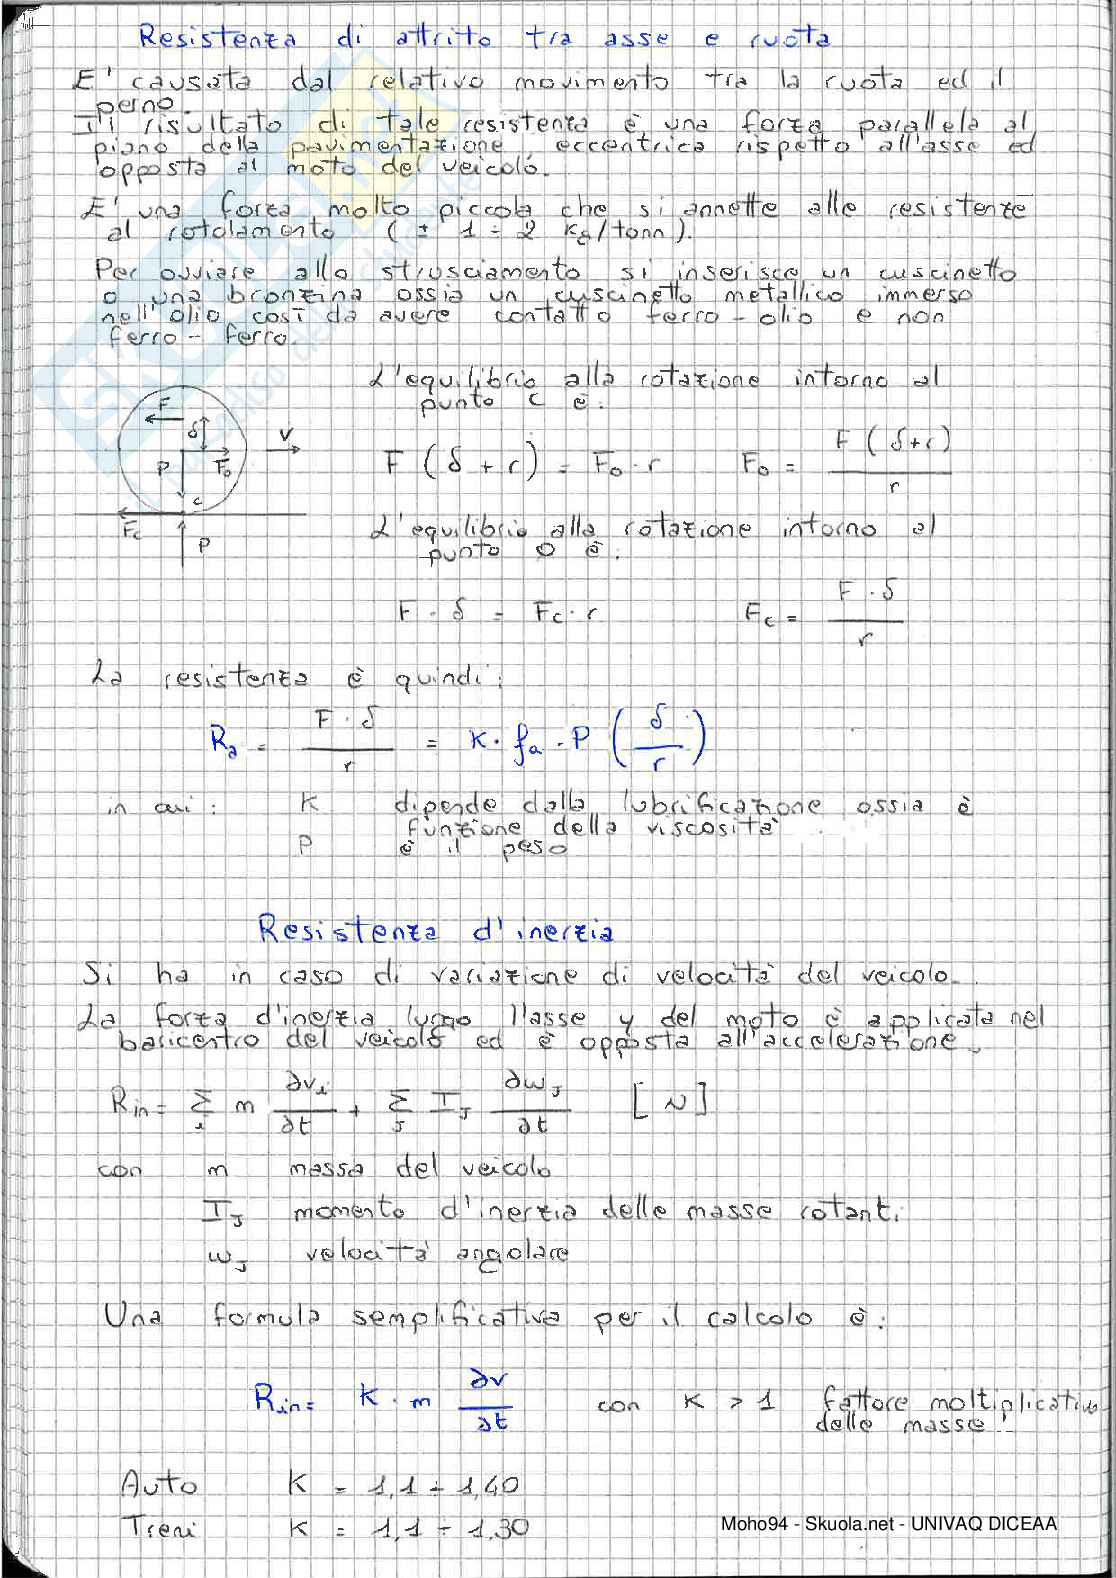 Resistenza di attrito tra asse e ruota
E' causata dal relativo movimento tra la ruota ed il
perno.
Il risultato di tale resistenza è una forza parallela al
piano della pavimentazione, eccentrica rispetto all'asse ed
opposta al moto del veicolo.
E' una forza molto piccola che si annette alle resistenze
al rotolamento ( ± 1 ÷ 2 kg/tonn ).
Per ovviare allo strusciamento si inserisce un cuscinetto
o una bronzina ossia un cuscinetto metallico immerso
nell'olio così da avere contatto ferro - olio e non
ferro - ferro.
L'equilibrio alla rotazione intorno al
punto c è:
F δ V P F₀ c Fc P
F ( δ + r ) = F₀ · r F₀ = F ( δ + r ) / r
L'equilibrio alla rotazione intorno al
punto O è:
F · δ = Fc · r Fc = F · δ / r
La resistenza è quindi:
Ra = F · δ / r = K · fa · P ( δ / r )
in cui: K dipende dalla lubrificazione ossia è
funzione della viscosità
P è il peso
Resistenza d'inerzia
Si ha in caso di variazione di velocità del veicolo.
La forza d'inerzia lungo l'asse y del moto è applicata nel
baricentro del veicolo ed è opposta all'accelerazione.
Rin = Σi m ∂vi/∂t + Σj Ij ∂wj/∂t [N]
con m massa del veicolo
Ij momento d'inerzia delle masse rotanti
wj velocità angolare
Una formula semplificativa per il calcolo è:
Rin = K · m ∂v/∂t con K > 1 fattore moltiplicativo
delle masse
Auto K = 1,1 ÷ 1,40
Treni K = 1,1 ÷ 1,30
Moho94 - Skuola.net - UNIVAQ DICEAA